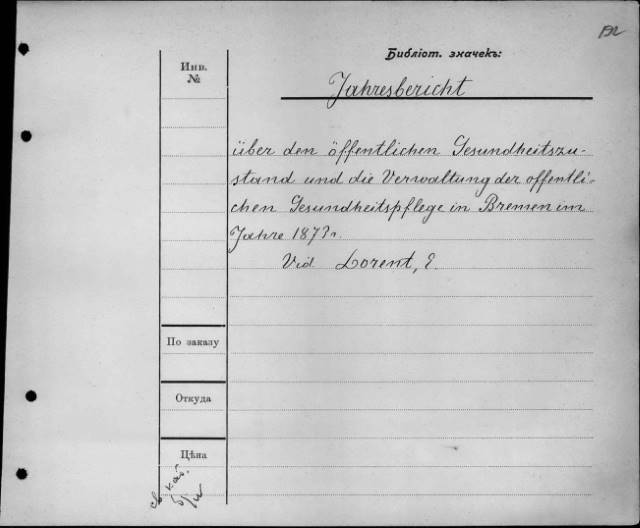 Библіот. значекъ:
Инв.
№
Jahresbericht
über den öffentlichen Gesundheitszu-
stand und die Verwaltung der öffentli-
chen Gesundheitspflege in Bremen im
Jahre
Vid. Lorent, E.
По заказу
Откуда
Цѣна